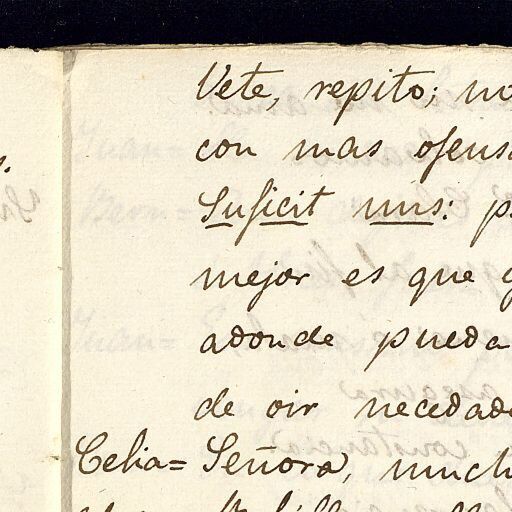 Vete, repito; no
con mas ofensa
Suficit unus: p
mejor es que y
adonde pueda
de oir necedade
Celia= Señora, much